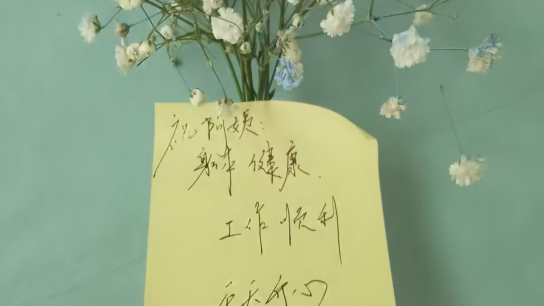 祝阿姨：
身体健康.
工作顺利
天天开心